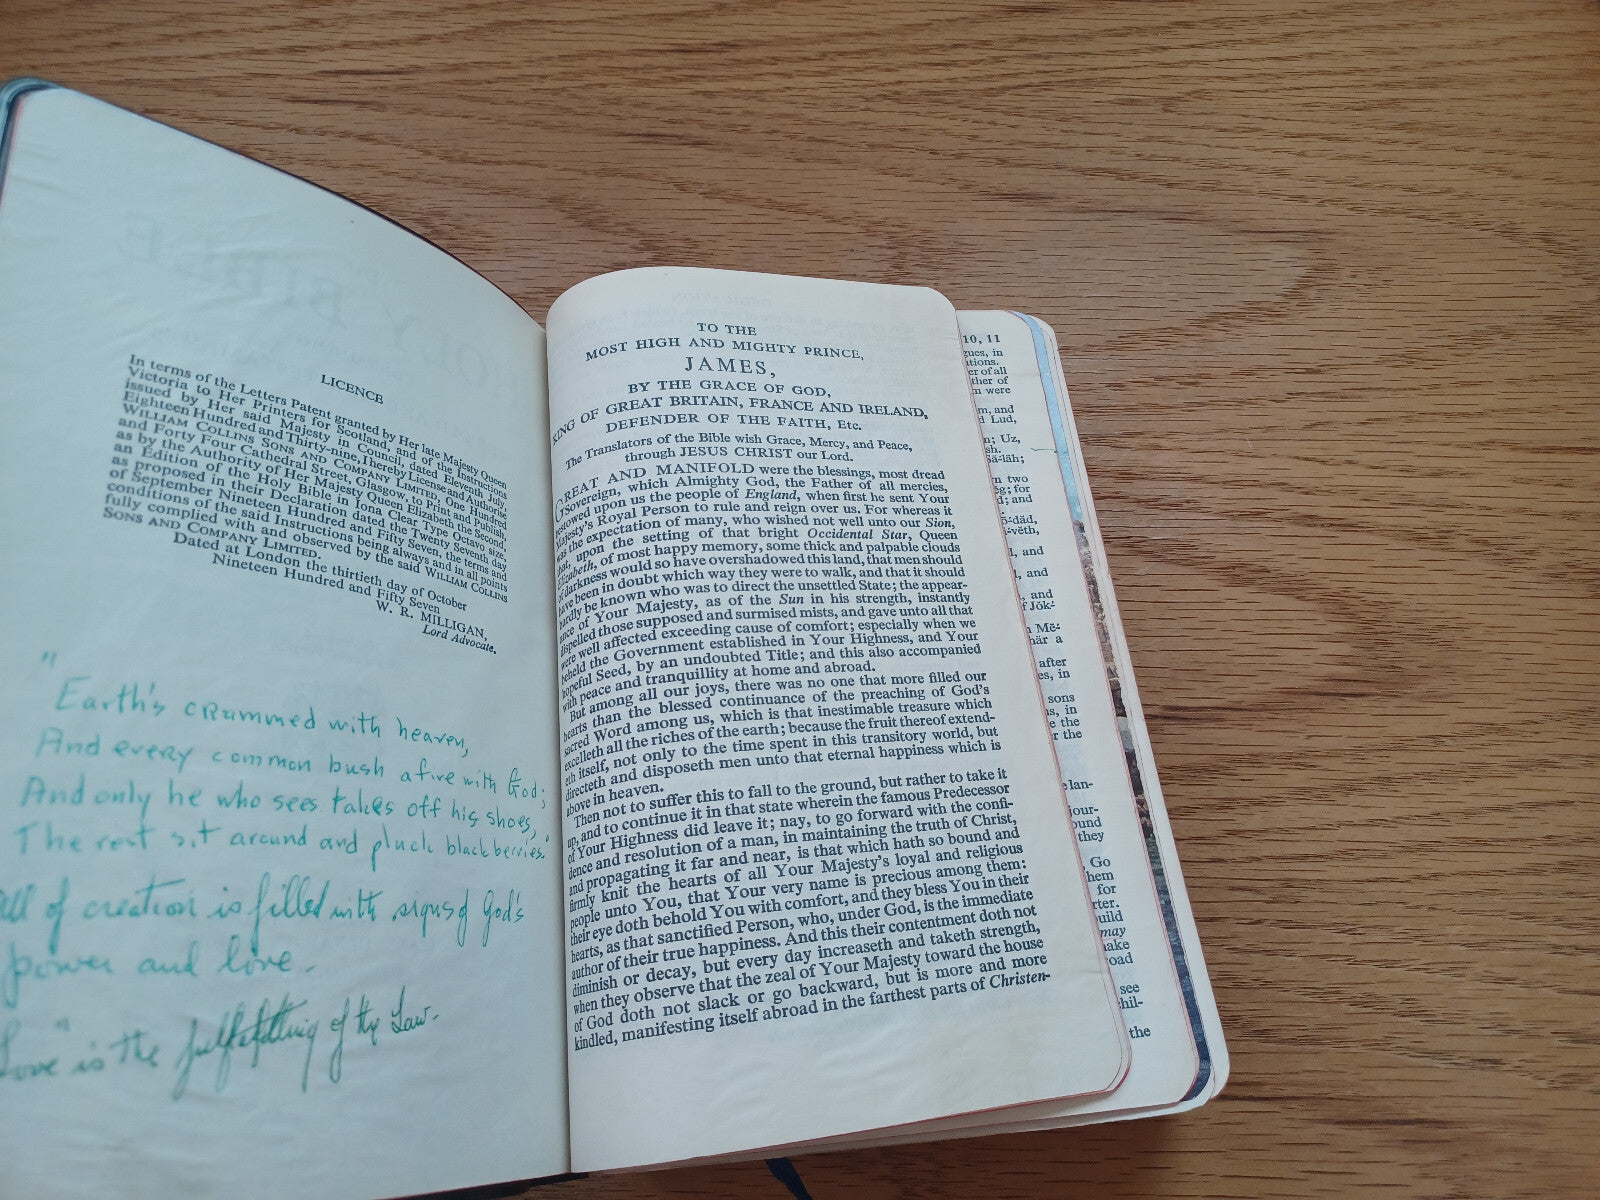 LICENCE
In terms of the Letters Patent granted by Her late Majesty Queen
Victoria to Her Printers for Scotland, and of the Instructions
issued by Her said Majesty in Council, dated Eleventh July,
Eighteen Hundred and Thirty-nine, I hereby License and Authorise
WILLIAM COLLINS SONS AND COMPANY LIMITED, One Hundred
and Forty Four Cathedral Street, Glasgow, to Print and Publish,
as by the Authority of Her Majesty Queen Elizabeth the Second,
an Edition of the Holy Bible in Iona Clear Type Octavo size,
as proposed in their Declaration dated the Twenty Seventh day
of September Nineteen Hundred and Fifty Seven, the terms and
conditions of the said Instructions being always and in all points
fully complied with and observed by the said WILLIAM COLLINS
SONS AND COMPANY LIMITED.
Dated at London the thirtieth day of October
Nineteen Hundred and Fifty Seven
W. R. MILLIGAN,
Lord Advocate.
"Earth's crammed with heaven,
And every common bush afire with God;
And only he who sees takes off his shoes,
The rest sit around and pluck blackberries."
All of creation is filled with signs of God's
power and love.
Love is the" fulfilling of the Law.
TO THE
MOST HIGH AND MIGHTY PRINCE,
JAMES,
BY THE GRACE OF GOD,
KING OF GREAT BRITAIN, FRANCE AND IRELAND,
DEFENDER OF THE FAITH, Etc.
The Translators of the Bible wish Grace, Mercy, and Peace,
through JESUS CHRIST our Lord.
GREAT AND MANIFOLD were the blessings, most dread
Sovereign, which Almighty God, the Father of all mercies,
bestowed upon us the people of England, when first he sent Your
Majesty's Royal Person to rule and reign over us. For whereas it
was the expectation of many, who wished not well unto our Sion,
that, upon the setting of that bright Occidental Star, Queen
Elizabeth, of most happy memory, some thick and palpable clouds
of darkness would so have overshadowed this land, that men should
have been in doubt which way they were to walk, and that it should
hardly be known who was to direct the unsettled State; the appear-
ance of Your Majesty, as of the Sun in his strength, instantly
dispelled those supposed and surmised mists, and gave unto all that
were well affected exceeding cause of comfort; especially when we
beheld the Government established in Your Highness, and Your
hopeful Seed, by an undoubted Title; and this also accompanied
with peace and tranquillity at home and abroad.
But among all our joys, there was no one that more filled our
hearts than the blessed continuance of the preaching of God's
sacred Word among us, which is that inestimable treasure which
excelleth all the riches of the earth; because the fruit thereof extend-
eth itself, not only to the time spent in this transitory world, but
directeth and disposeth men unto that eternal happiness which is
above in heaven.
Then not to suffer this to fall to the ground, but rather to take it
up, and to continue it in that state wherein the famous Predecessor
of Your Highness did leave it; nay, to go forward with the confi-
dence and resolution of a man, in maintaining the truth of Christ,
and propagating it far and near, is that which hath so bound and
firmly knit the hearts of all Your Majesty's loyal and religious
people unto You, that Your very name is precious among them:
their eye doth behold You with comfort, and they bless You in their
hearts, as that sanctified Person, who, under God, is the immediate
author of their true happiness. And this their contentment doth not
diminish or decay, but every day increaseth and taketh strength,
when they observe that the zeal of Your Majesty toward the house
of God doth not slack or go backward, but is more and more
kindled, manifesting itself abroad in the farthest parts of Christen-
10, 11